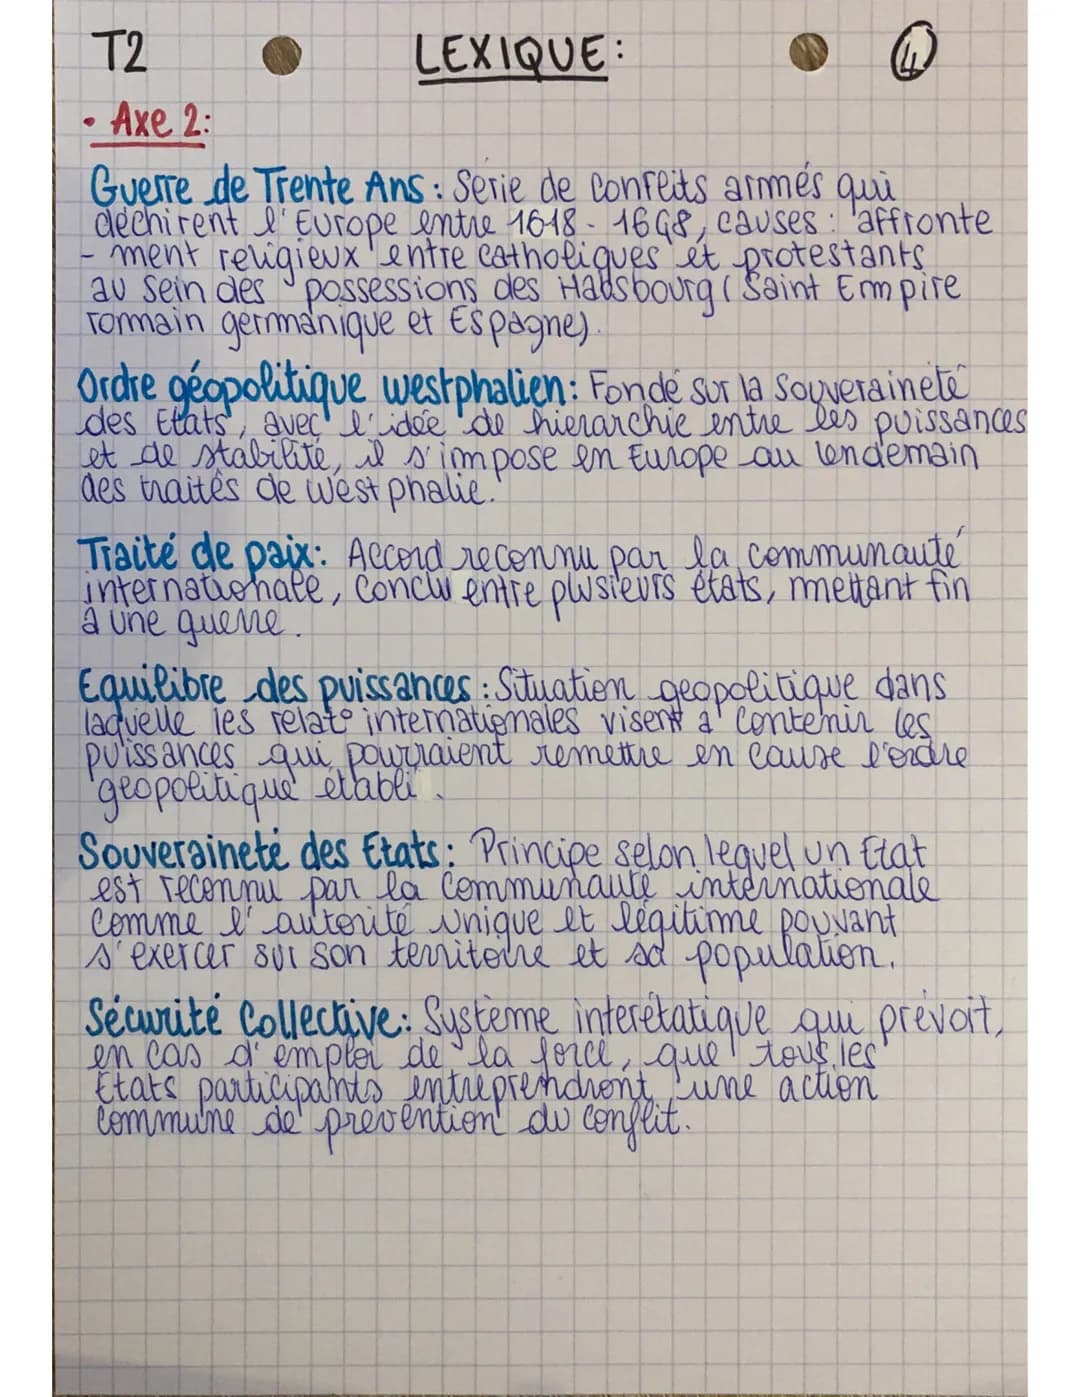 T2 LEXIQUE: 4
• Axe 2:
Guerre de Trente Ans : Série de conflits armés qui
déchirent l'Europe entre 1618 - 1648, causes : affronte
- ment religieux entre catholiques et protestants
au sein des possessions des Habsbourg (Saint Empire
romain germanique et Espagne).
Ordre géopolitique westphalien : Fondé sur la Souveraineté
des Etats, avec l'idée de hiérarchie entre les puissances
et de stabilité, il s'impose en Europe au lendemain
des traités de westphalie.
Traité de paix : Accord reconnu par la communauté
internationale, conclu entre plusieurs états, mettant fin
à une guerre.
Equilibre des puissances : Situation géopolitique dans
laquelle les relat° internationales visent à contenir les
puissances qui pourraient remettre en cause l'ordre
géopolitique établi.
Souveraineté des Etats : Principe selon lequel un Etat
est reconnu par la communauté internationale
comme l'autorité unique et légitime pouvant
s'exercer sur son territoire et sa population.
Sécurité Collective : Système interétatique qui prévoit,
en cas d'emploi de la force, que tous les
Etats participants entreprendront une action
commune de prévention du conflit.